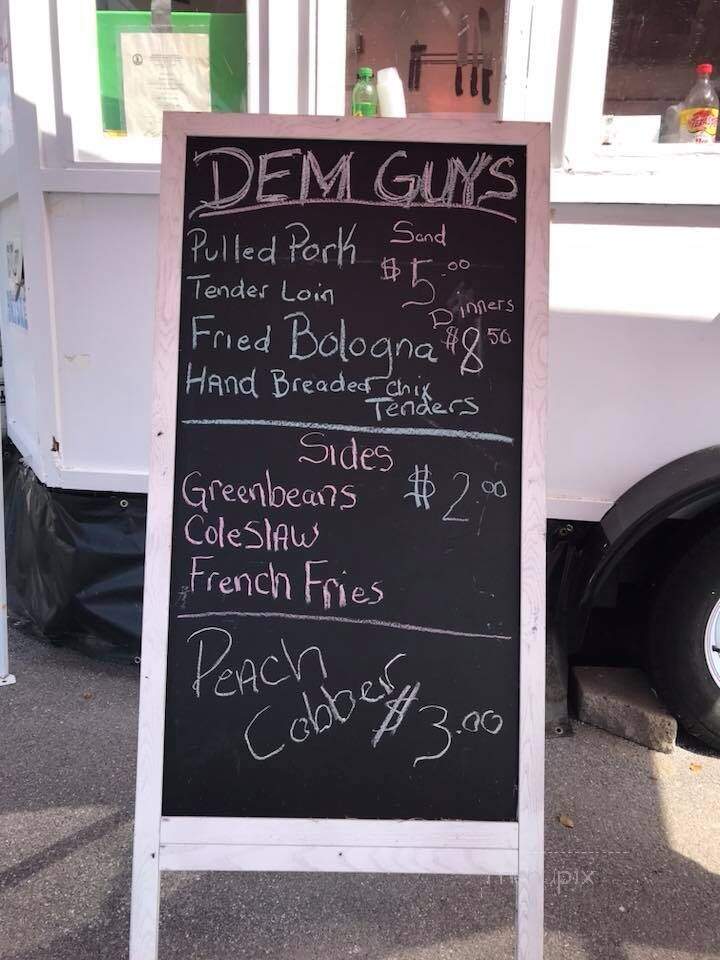 DEM GUYS
Pulled Pork Sand
$5.00
Tender Loin
Dinners
Fried Bologna $8.50
HAnd Breaded Chix
Tenders
Sides
Greenbeans $2.00
ColeSlAw
French Fries
PeAch
Cobber $3.00